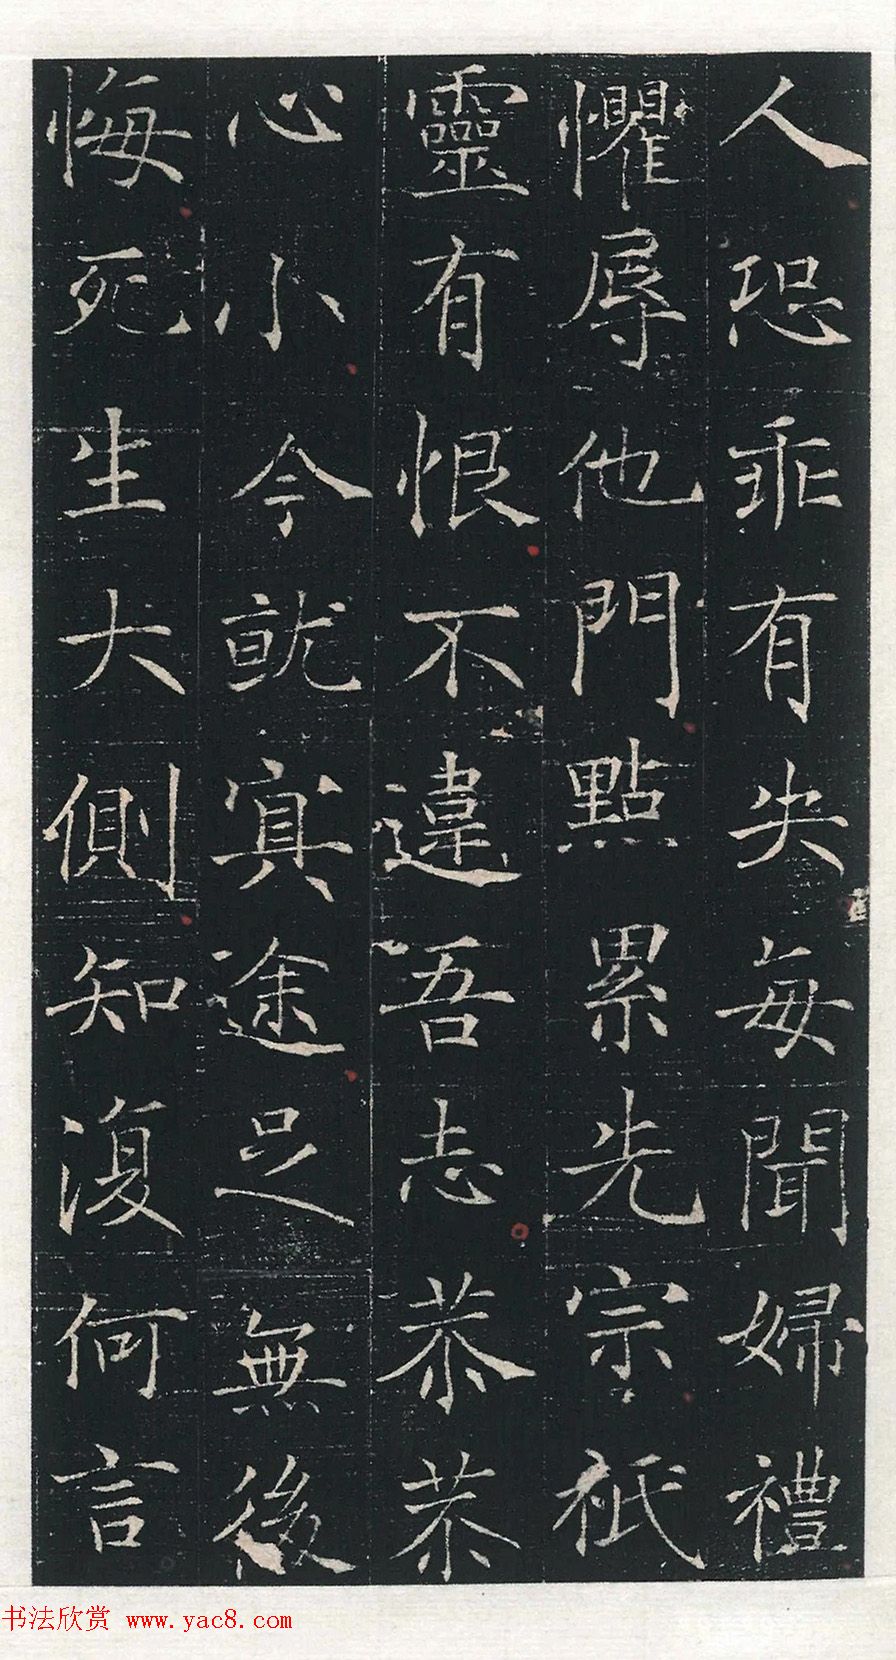 人恐乖有失每聞婦禮
懼辱他門點累先宗祇
靈有恨不違吾志恭恭
心小今就寘途足無後
悔死生大側知復何言
书法欣赏 www.yac8.com